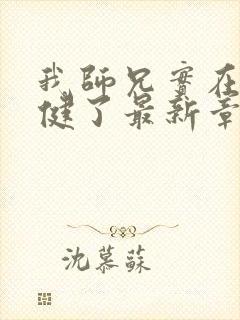 我師兄實在
健了最新章
沈慕蘇